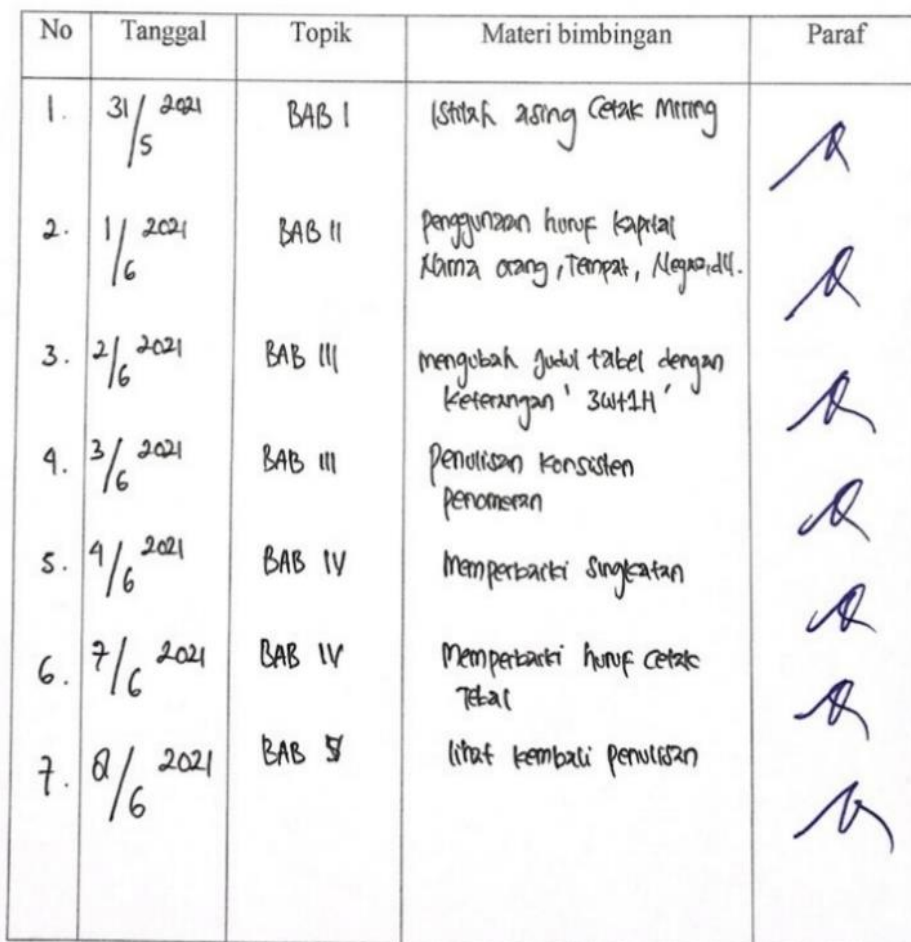 No Tanggal Topik Materi bimbingan Paraf
1. 31/5 2021 BAB I Istilah asing Cetak Miring
2. 1/6 2021 BAB II penggunaan huruf kapital
Nama orang, Tempat, Negara, dll.
3. 2/6 2021 BAB III mengubah Judul tabel dengan
keterangan ' 3W+1H '
4. 3/6 2021 BAB III Penulisan konsisten
penomeran
5. 4/6 2021 BAB IV Memperbaiki Singkatan
6. 7/6 2021 BAB IV Memperbaiki huruf Cetak
Tebal
7. 8/6 2021 BAB 5 lihat kembali penulisan